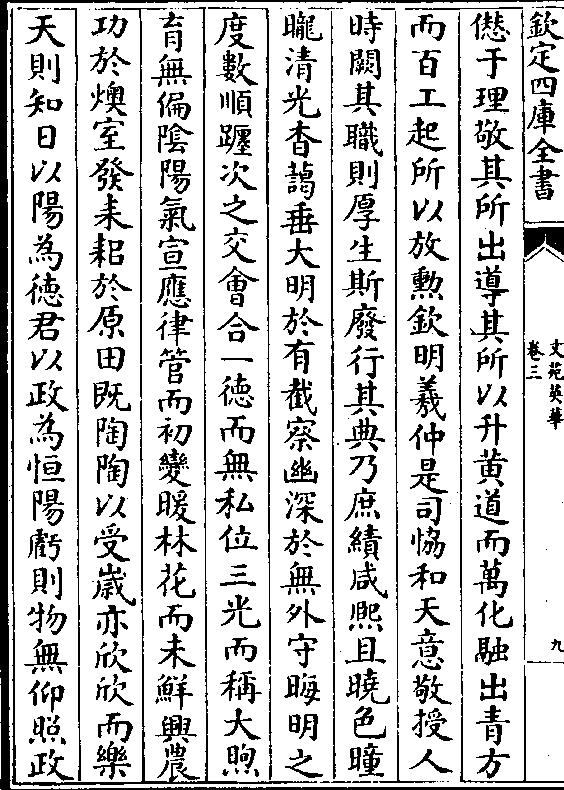 欽定四庫全書
文苑英華
卷三
九
愆于理敬其所出導其所以升黄道而萬化融出青方
而百工起所以放勲欽明羲仲是司恊和天意敬授人
時闕其職則厚生斯廢行其典乃庶績咸熈且曉色曈
曨清光杳藹垂大明於有截察幽深於無外守晦明之
度數順躔次之交會合一徳而無私位三光而稱大煦
育無偏陰陽氣宣應律管而初變暖林花而未鮮興農
功於燠室發耒耜於原田既陶陶以受歳亦欣欣而樂
天則知日以陽為徳君以政為恒陽虧則物無仰照政